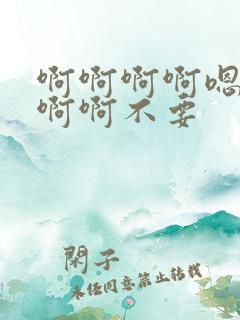 啊啊啊啊嗯
啊啊不要
閑子
未经同意禁止转载